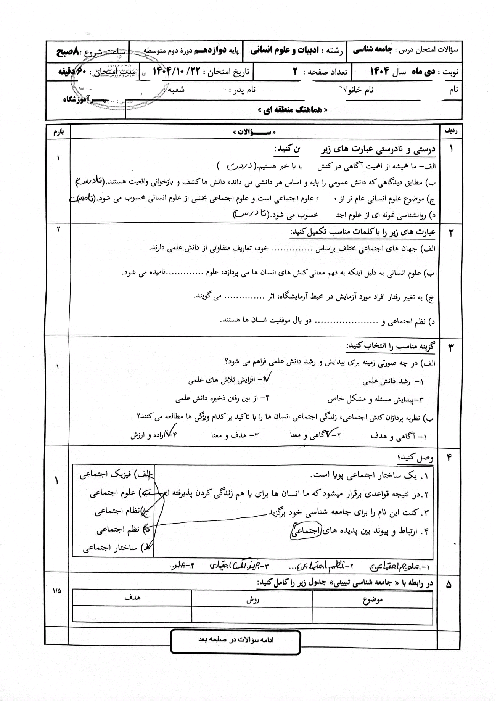 سؤالات امتحان درس: جامعه شناسی رشته: ادبیات و علوم انسانی پایه دوازدهم دوره دوم متوسطه ساعت شروع: ۸ صبح
نوبت: دی ماه سال ۱۴۰۴ تعداد صفحه: ۲ تاریخ امتحان: ۱۴۰۴/۱۰/۲۲ مدت امتحان: ۶۰ دقیقه
نام نام خانو نام پدر: شعبه آموزشگاه
« هماهنگ منطقه ای »
ردیف « سؤالات » بارم
۱ درستی و نادرستی عبارت های زیر ن کنید: ۱
الف- ما همیشه از اهمیت آگاهی در کنش با خبر هستیم.(نادرس )
ب) مطابق دیدگاهی که دانش عمومی را پایه و اساس هر دانشی می داند، دانش ها کشف و بازخوانی واقعیت هستند.(نادرس)
ج) موضوع علوم انسانی عام تر از علوم اجتماعی است و علوم اجتماعی بخشی از علوم انسانی محسوب می شود.
د) روانشناسی نمونه ای از علوم اجت محسوب می شود.(نادرس)
۲ عبارت های زیر را با کلمات مناسب تکمیل کنید: ۲
الف) جهان های اجتماعی مختلف براساس .............. خود، تعاریف متفاوتی از دانش علمی دارند.
ب) علوم انسانی به دلیل اینکه به فهم معانی کنش های انسان ها می پردازد، علوم .............نامیده می شود.
ج) به تغییر رفتار افراد مورد آزمایش در محیط آزمایشگاه، اثر ............. می گویند.
د) نظم اجتماعی و .................... دو بال موفقیت انسان ها هستند.
۳ گزینه مناسب را انتخاب کنید: ۱
الف) در چه صورتی زمینه برای پیدایش و رشد دانش علمی فراهم می شود؟
۱- رشد دانش علمی ۲- افزایش تلاش های علمی
۳-پیدایش مسئله و مشکل خاص ۴- از بین رفتن ذخیره دانش علمی
ب) نظریه پردازان کنش اجتماعی، زندگی اجتماعی انسان ها را با تاکید بر کدام ویژگی ها مطالعه می کنند؟
۱- آگاهی و هدف ۲-آگاهی و معنا ۳- هدف و معنا ۴-اراده و ارزش
۴ وصل کنید: ۱
۱. یک ساختار اجتماعی پویا است. الف) فیزیک اجتماعی
۲.در نتیجه قواعدی برقرار میشود که ما انسان ها برای با هم زندگی کردن پذیرفته ا علوم اجتماعی
۳. کنت این نام را برای جامعه شناسی خود برگزید نظام اجتماعی
۴. ارتباط و پیوند بین پدیده های اجتماعی نظم اجتماعی
ساختار اجتماعی
۵ در رابطه با « جامعه شناسی تبیینی» جدول زیر را کامل کنید: ۱/۵
موضوع روش هدف
ادامه سؤالات در صفحه بعد